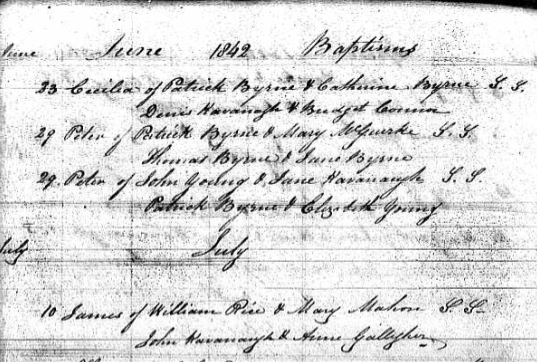 June June 1842 Baptisms
23 Cecilia of Patrick Byrne & Catherine Byrne S. S.
Denis Kavanagh & Bridget Connor
29 Peter of Patrick Byrne & Mary McGuirke S. S.
Thomas Byrne & Jane Byrne
29 Peter of John Young & Jane Kavanaugh S. S.
Patrick Byrne & Elizabeth Young
July July
10 James of William Rice & Mary Mahon S. S.
John Kavanaugh & Anne Gallagher